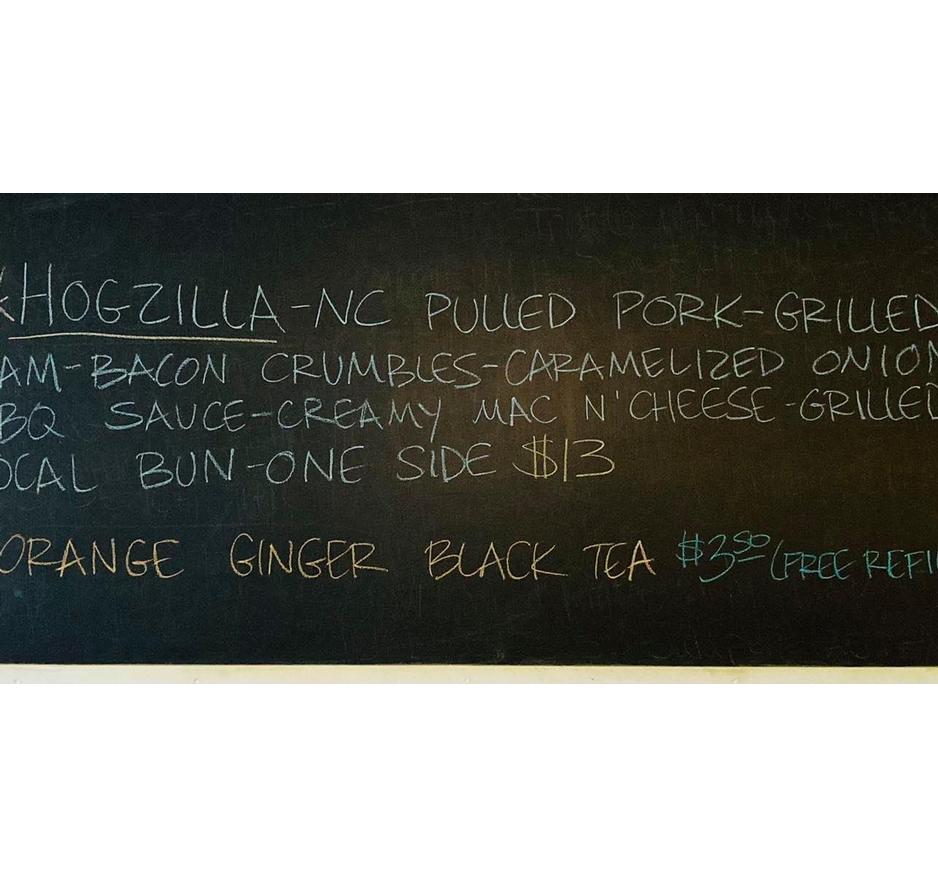 *HOGZILLA-NC PULLED PORK-GRILLED
AM-BACON CRUMBLES-CARAMELIZED ONION
BQ SAUCE-CREAMY MAC N'CHEESE-GRILLED
OCAL BUN-ONE SIDE $13
ORANGE GINGER BLACK TEA $3.50 (FREE REFI